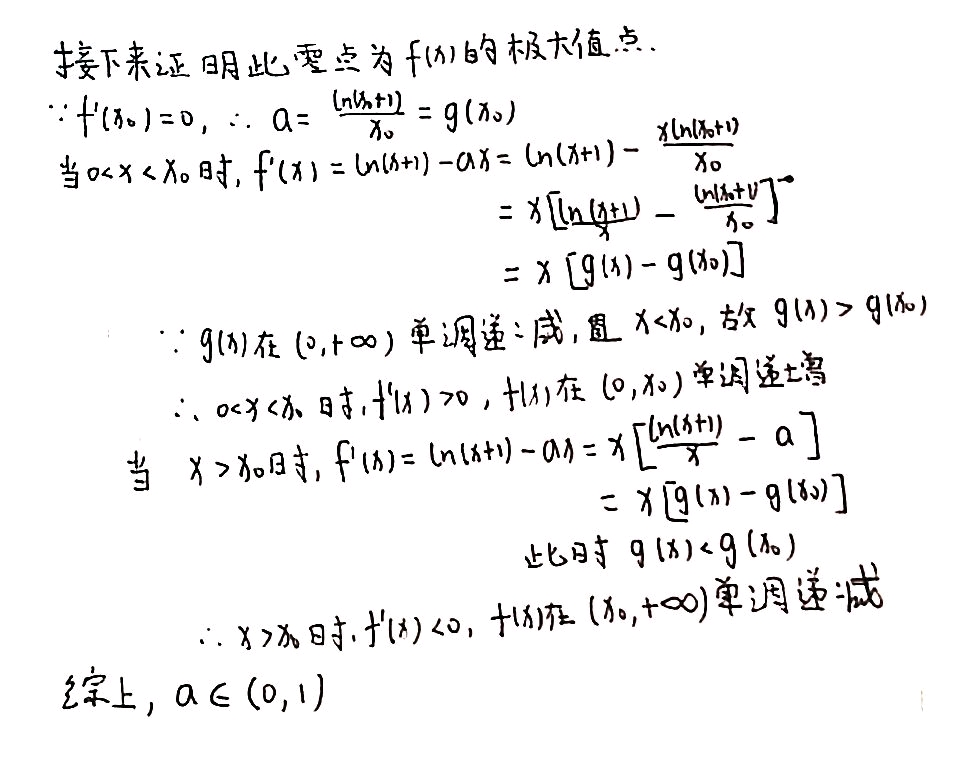 接下来证明此零点为f(x)的极大值点.
∵f'(x₀)=0, ∴ a= ln(x₀+1)/x₀ = g(x₀)
当0<x<x₀时, f'(x)=ln(x+1)-ax= ln(x+1) - xln(x₀+1)/x₀
= x[ln(x+1)/x - ln(x₀+1)/x₀]
= x[g(x)-g(x₀)]
∵ g(x)在(0,+∞)单调递减,且 x<x₀, 故 g(x)>g(x₀)
∴ 0<x<x₀时,f'(x)>0, f(x)在(0,x₀)单调递增
当 x>x₀时, f'(x)=ln(x+1)-ax= x[ln(x+1)/x - a]
= x[g(x)-g(x₀)]
此时 g(x)<g(x₀)
∴ x>x₀时,f'(x)<0, f(x)在(x₀,+∞)单调递减
综上, a∈(0,1)